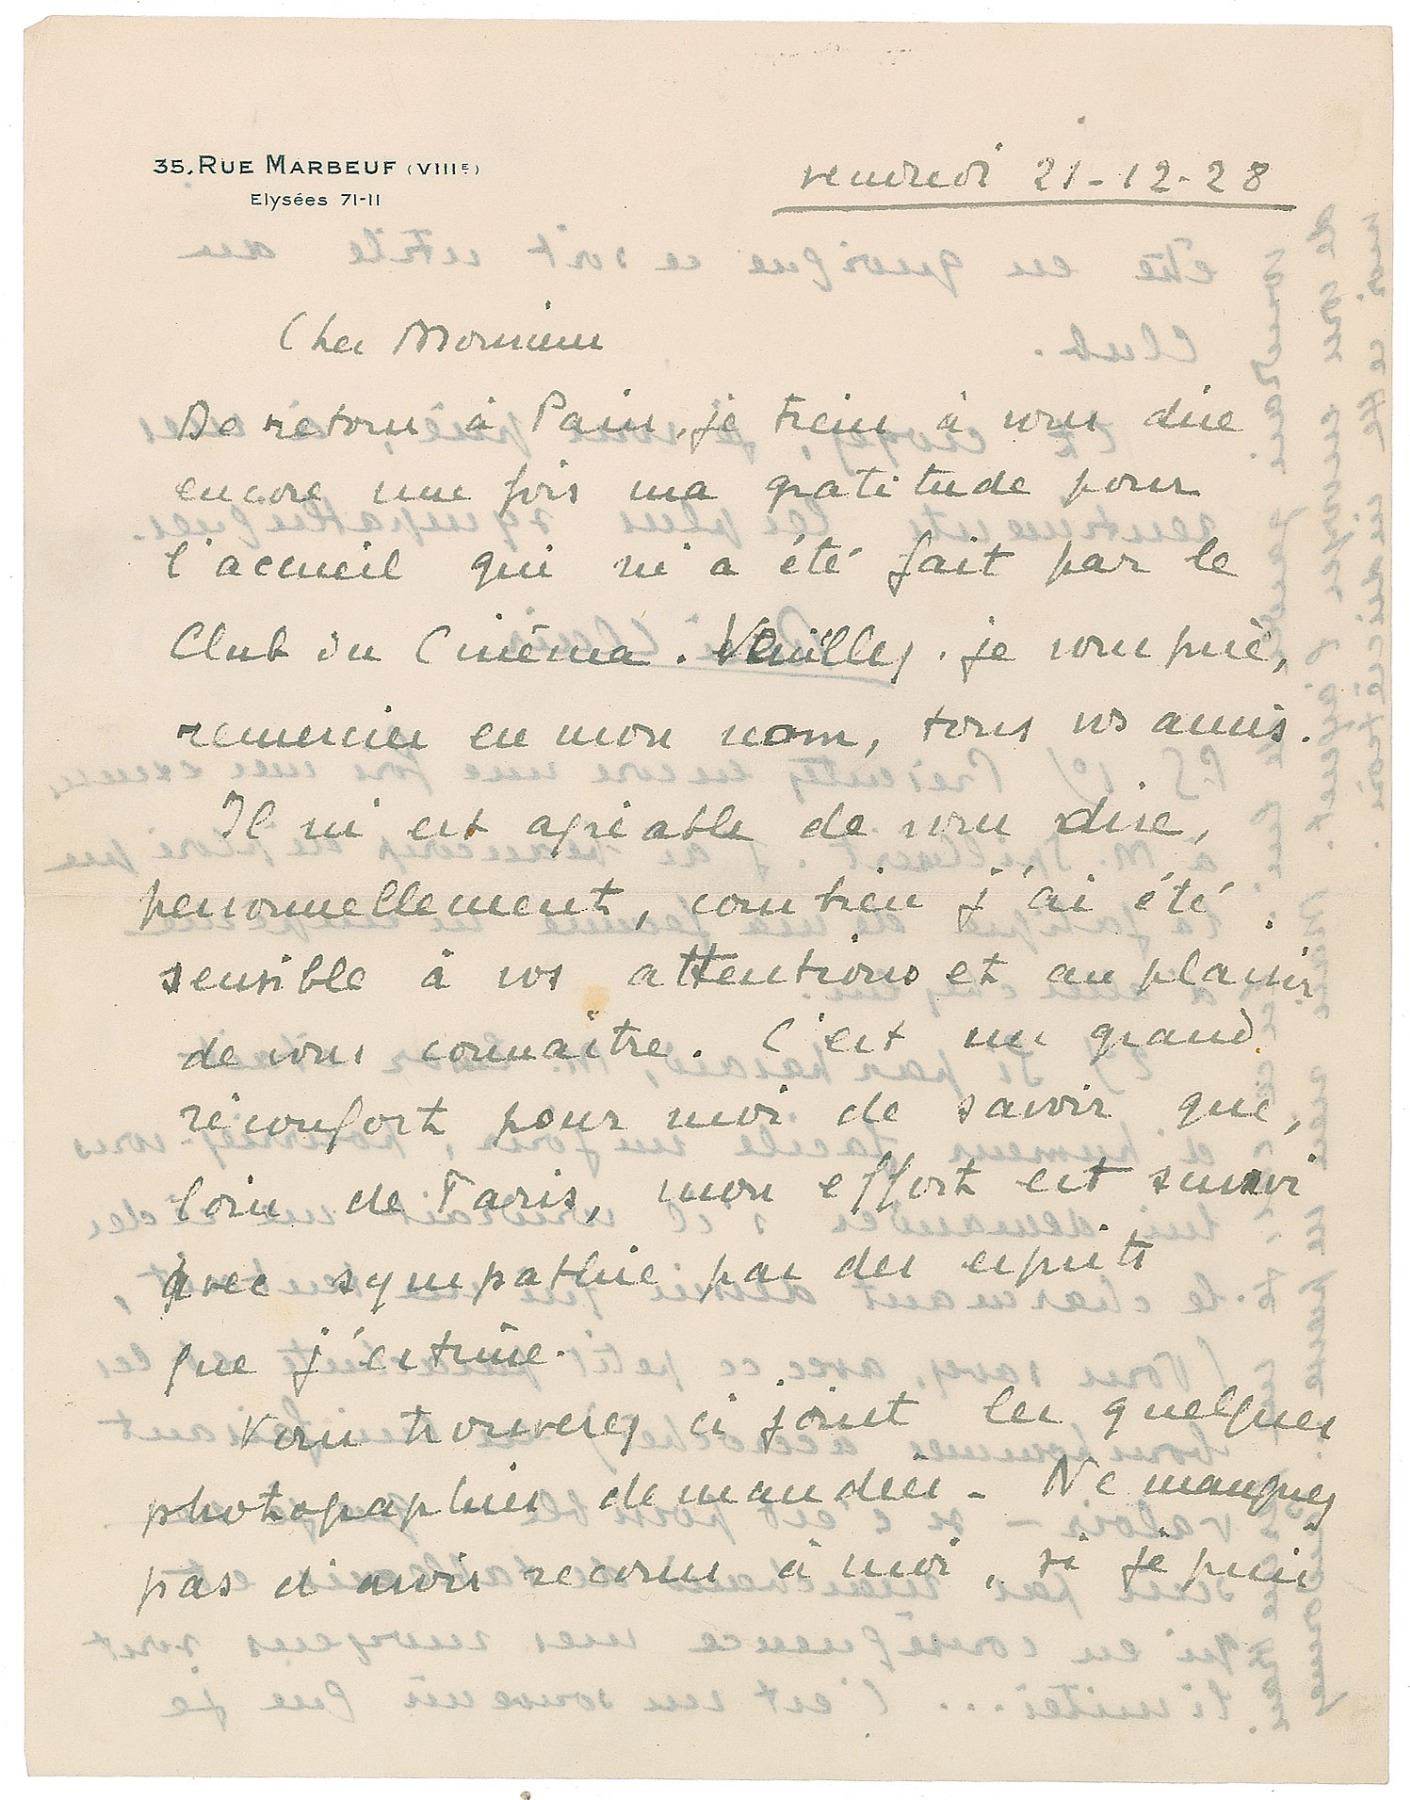 35, RUE MARBEUF (VIIIE)
Elysées 71-11
vendredi 21-12-28
Cher Monsieur
De retour à Paris, je tiens à vous dire
encore une fois ma gratitude pour
l'accueil qui m'a été fait par le
Club du Cinéma. Veuillez, je vous prie,
remercier en mon nom, tous vos amis.
Il m'est agréable de vous dire,
personnellement, combien j'ai été
sensible à vos attentions et au plaisir
de vous connaître. C'est un grand
réconfort pour moi de savoir que,
loin de Paris, mon effort est suivi
avec sympathie par des esprits
que j'estime.
Vous trouverez ci joint les quelques
photographies demandées - Ne manquez
pas d'avoir recours à moi, si je puis